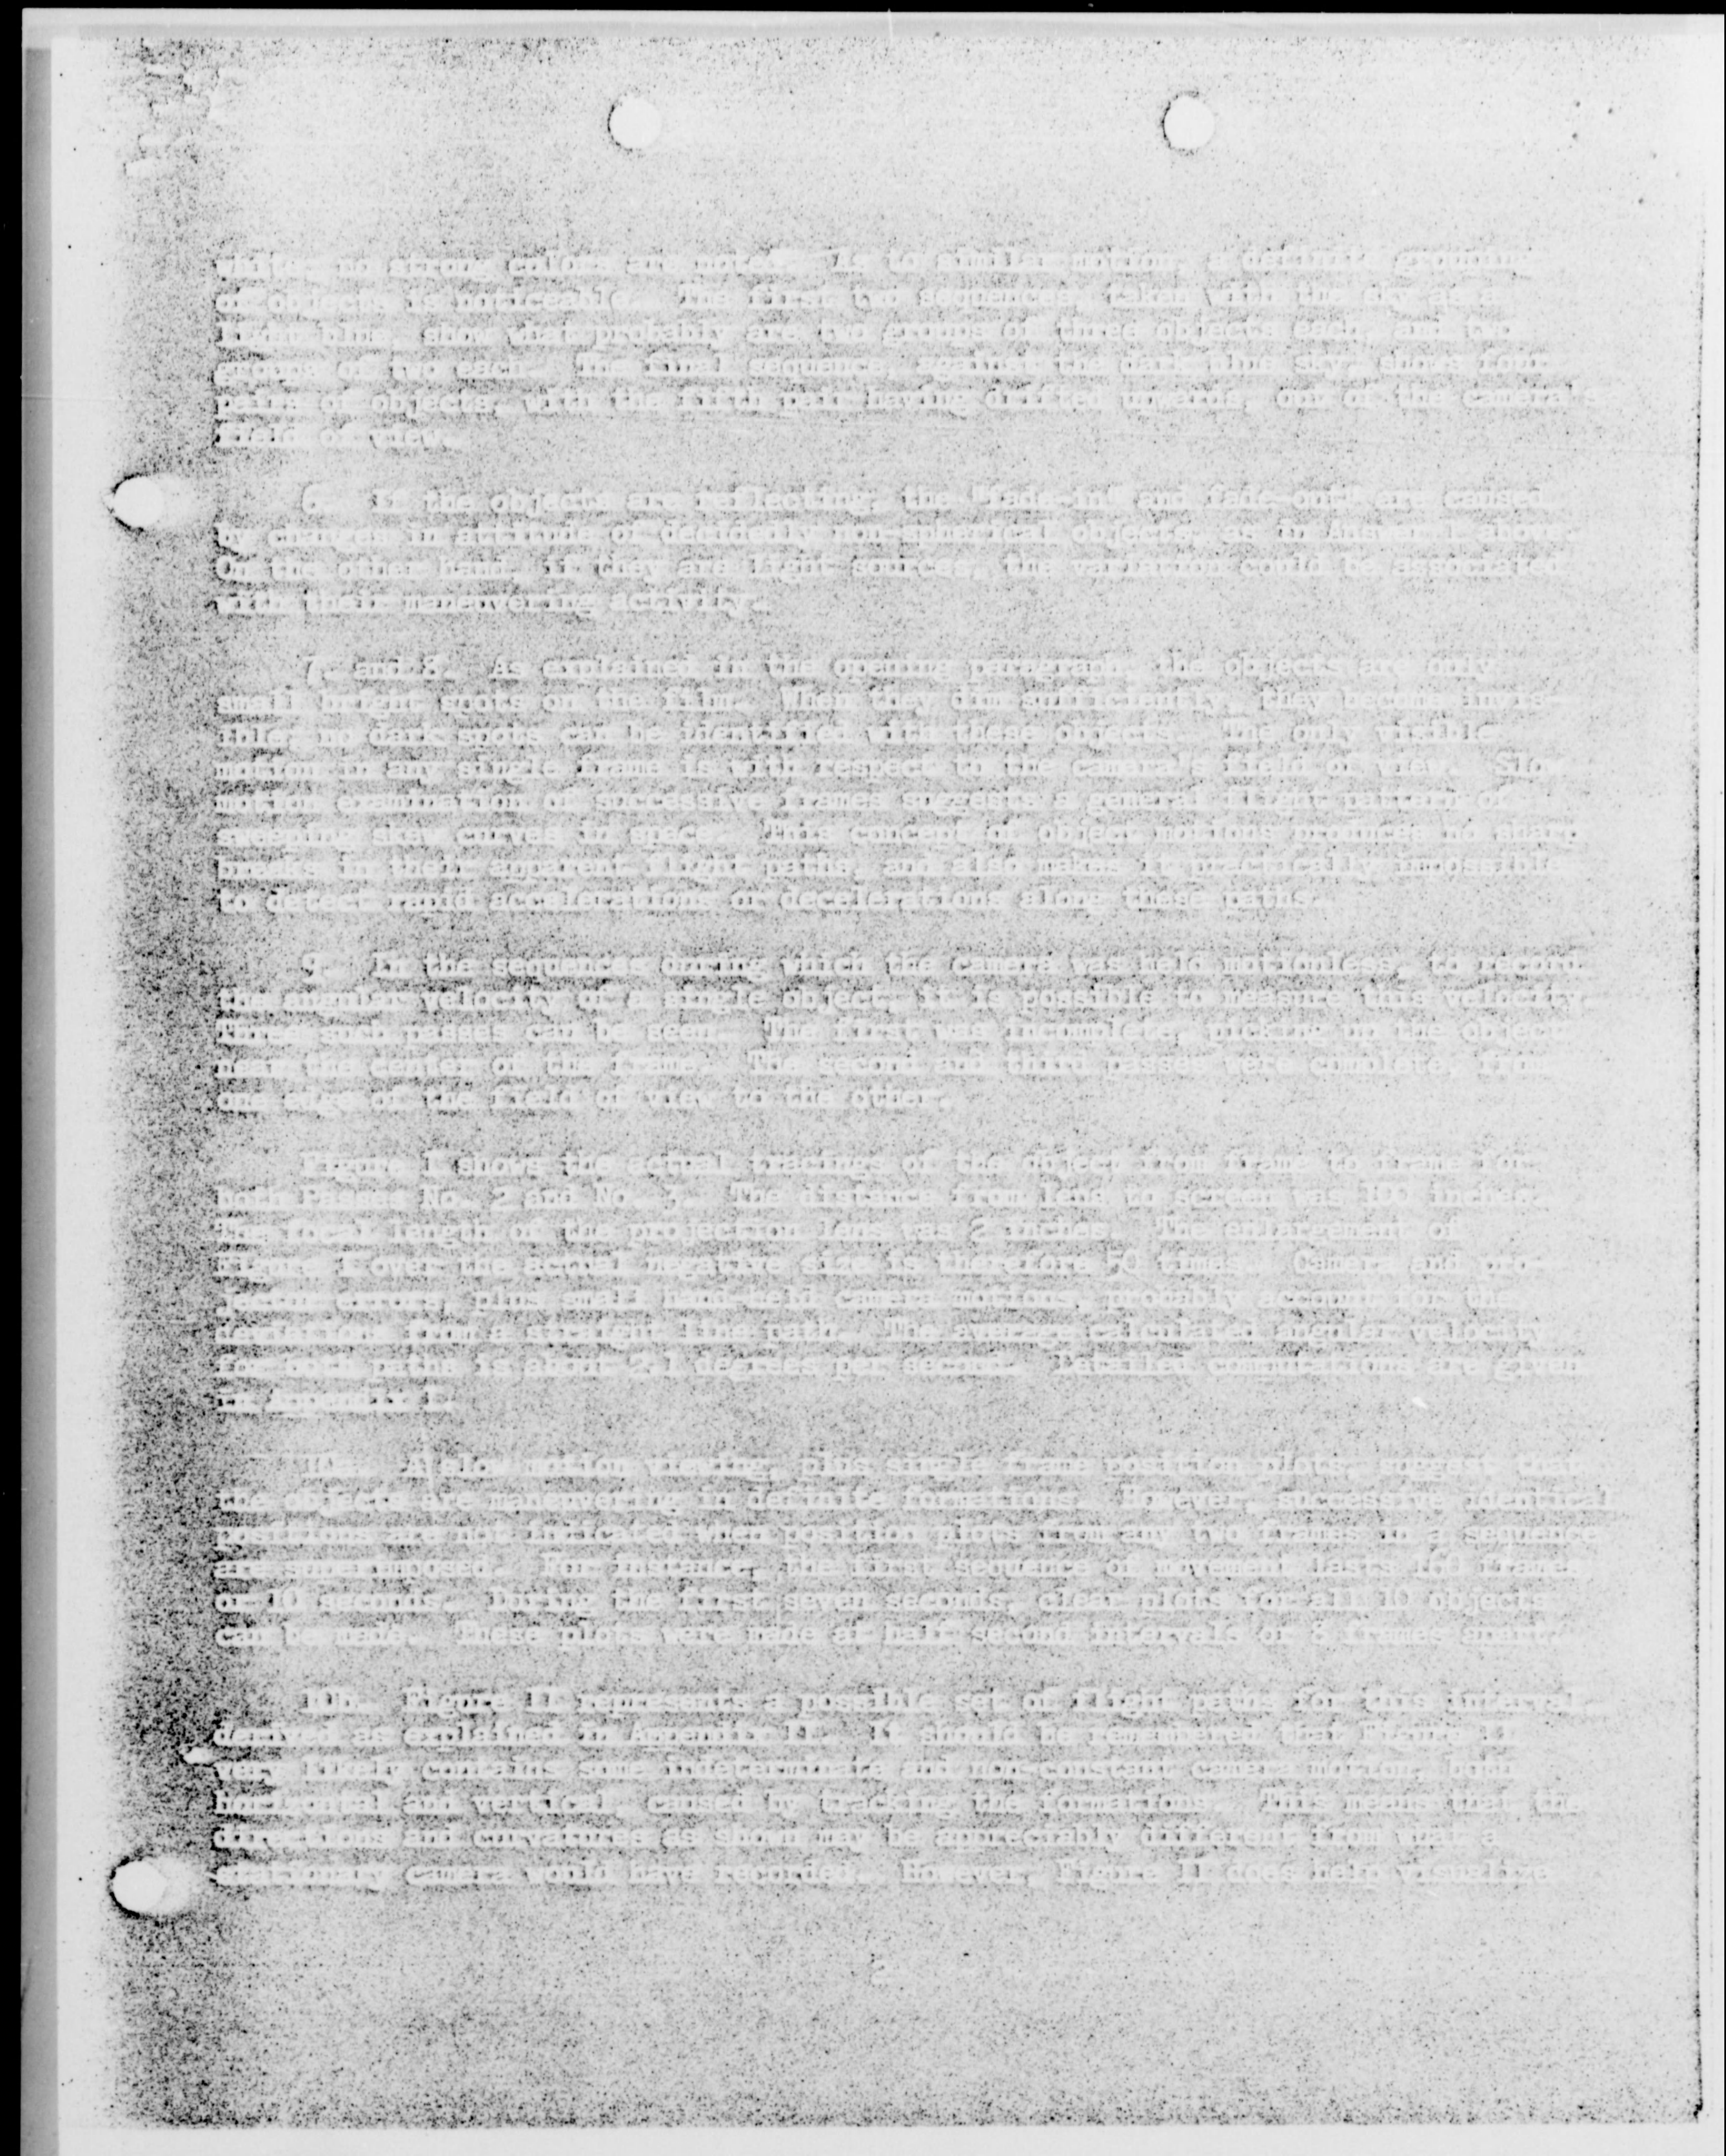 no strong colors are noted. As to similar motion, a definite grouping
of objects is noticeable. The first two sequences, taken with the sky as a
light blue, show what probably are two groups of three objects each, and two
groups of two each. The final sequence, against the dark blue sky, shows four
pairs of objects, with the fifth pair having drifted out of the camera's
field of view.
6. If the objects are reflecting, the "fade-in" and fade-out are caused
by changes in attitude of decidedly non-spherical objects, as in Answer 1 above.
On the other hand, if they are light sources, the variation could be associated
with their maneuvering activity.
7. and 8. As explained in the opening paragraph, the objects are only
small bright spots on the film. When they dim sufficiently, they become invis-
ible and dark spots can be identified with these objects. The only visible
motion in any single frame is with respect to the camera's field of view. Slow
motion examination of successive frames suggests a general flight pattern of
skew curves in space. This concept of object motions produces no sharp
breaks in their apparent flight paths, and also makes it practically impossible
to detect rapid accelerations or decelerations along these paths.
9. In the sequences during which the camera was held motionless, to record
the angular velocity of a single object, it is possible to measure this velocity.
Three such passes can be seen. The first was incomplete, picking up the object
near the center of the frame. The second and third passes were complete, from
one edge of the field of view to the other.
Figure I shows the actual tracings of the object from frame to frame for
both Passes No. 2 and No. 3. The distance from lens to screen was 100 inches.
The focal length of the projection lens was 2 inches. The enlargement of
Figure I over the actual negative size is therefore 50 times. Camera and pro-
jection errors, plus small hand-held camera motions, probably account for the
deviations from a straight line path. The average calculated angular velocity
for both paths is about degrees per second. Detailed computations are given
in Appendix I.
10a. A slow motion viewing, plus single frame position plots, suggest that
the objects are maneuvering in definite formations. However, successive identical
positions are not indicated when position plots from any two frames in a sequence
are superimposed. For instance, the first sequence of movement lasts 160 frames
or 10 seconds. During the first seven seconds, clear plots for all 10 objects
can be made. These plots were made at half second intervals or 8 frames apart.
10b. Figure II represents a possible set of flight paths for this interval
derived as explained in Appendix II. It should be remembered that Figure II
very likely contains some indeterminate and non-constant camera motion, both
horizontal and vertical, caused by tracking the formations. This means that the
directions and curvatures as shown may be appreciably different from what a
stationary camera would have recorded. However, Figure II does help visualize
2